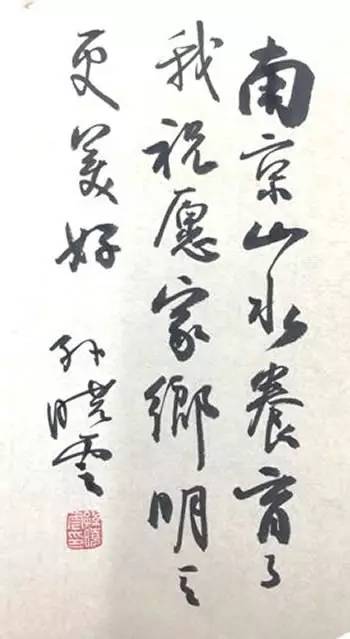 南京山水養育了
我祝愿家鄉明天
更美好
孙晓雲